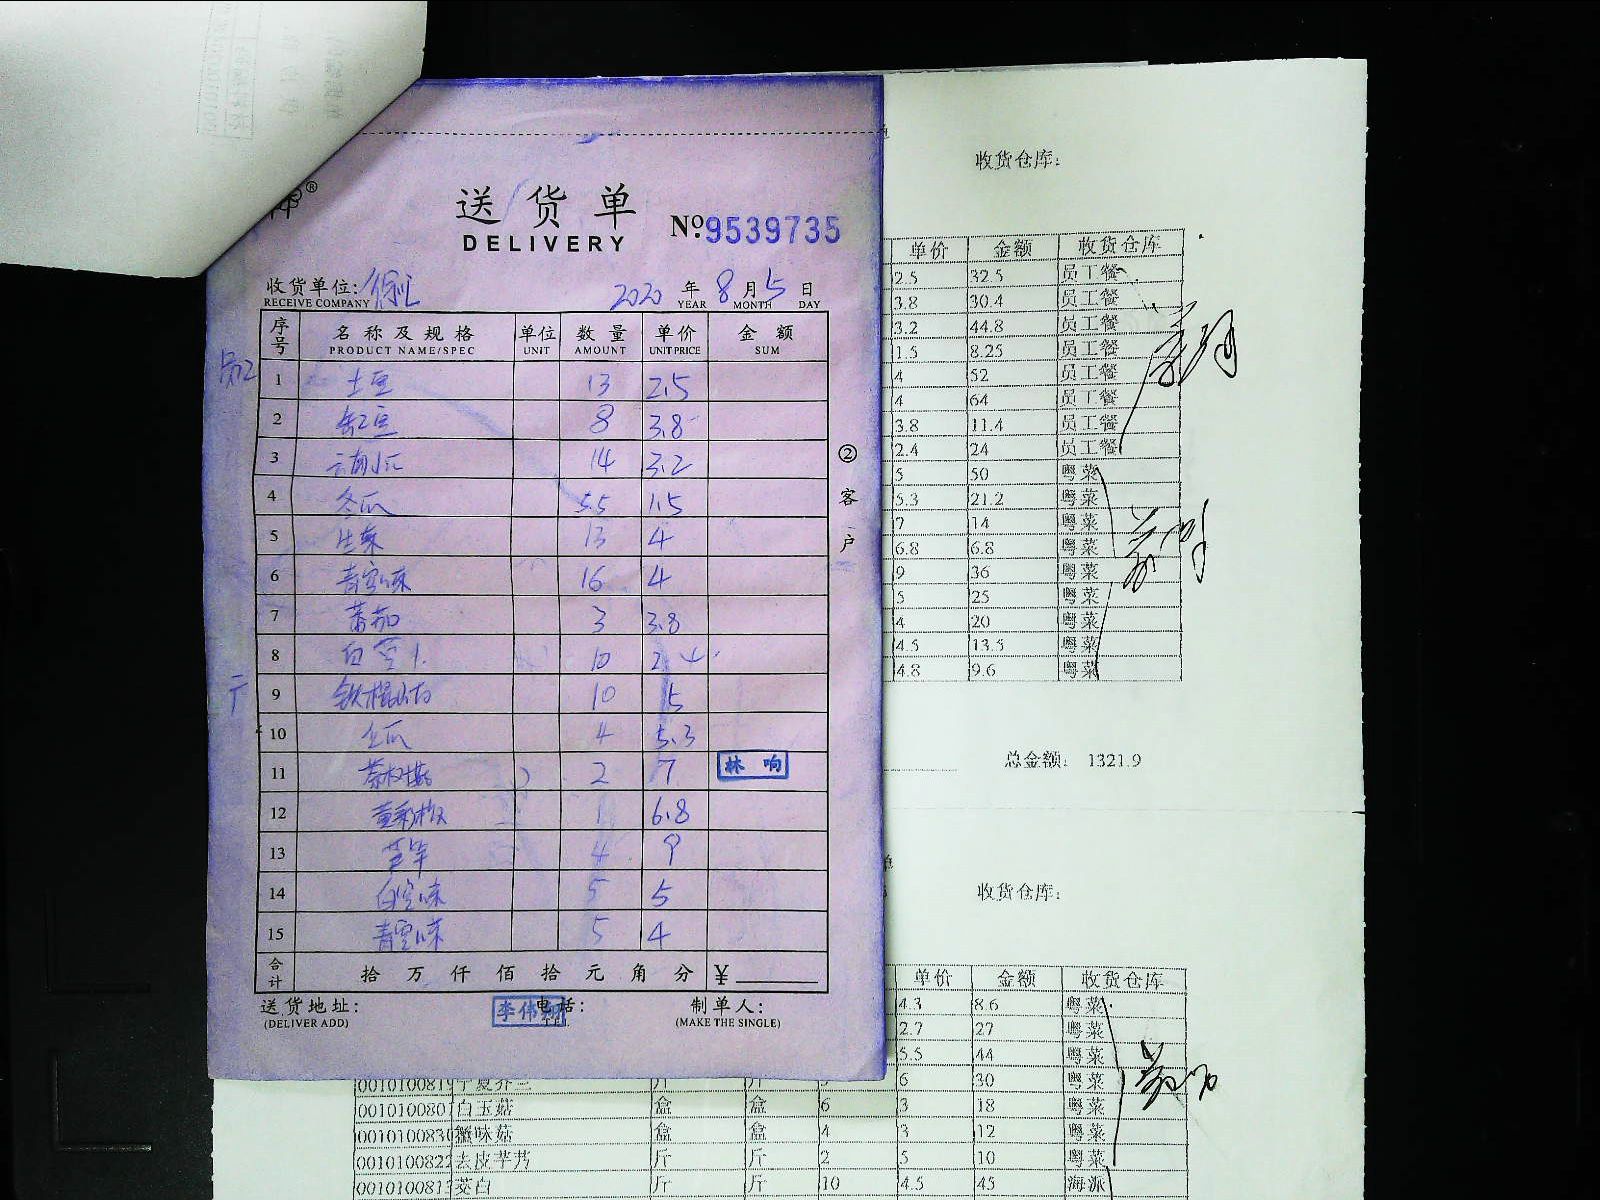 送货单
DELIVERY
No. 9539735
收货单位:
RECEIVE COMPANY
2020 年 8 月 5 日
YEAR MONTH DAY
序号 名称及规格 单位 数量 单价 金额
PRODUCT NAME/SPEC UNIT AMOUNT UNIT PRICE SUM
员工
1 土豆 13 2.5
2 8 3.8
3 云南小瓜 14 3.2
4 冬瓜 5.5 1.5
5 生菜 13 4
6 16 4
7 蕃茄 3 3.8
8 10 2.4
9 铁棍山药 10 5
10 4 5.3
11 茶树菇 2 7 林响
12 1 6.8
13 4 9
14 5 5
15 5 4
合计 拾 万 仟 佰 拾 元 角 分 ¥
送货地址: 李伟 电话: 制单人:
(DELIVER ADD) (MAKE THE SINGLE)
② 客户
收货仓库:
单价 金额 收货仓库
2.5 32.5 员工餐
3.8 30.4 员工餐
3.2 44.8 员工餐
1.5 8.25 员工餐
4 52 员工餐
4 64 员工餐
3.8 11.4 员工餐
2.4 24 员工餐
5 50 粤菜
5.3 21.2 粤菜
7 14 粤菜
6.8 6.8 粤菜
9 36 粤菜
5 25 粤菜
4 20 粤菜
4.5 13.5 粤菜
4.8 9.6 粤菜
总金额: 1321.9
收货仓库:
单价 金额 收货仓库
4.3 8.6 粤菜
2.7 27 粤菜
5.5 44 粤菜
宁夏芥兰 斤 斤 5 6 30 粤菜
001010080 白玉菇 盒 盒 6 3 18 粤菜
001010083 蟹味菇 盒 盒 4 3 12 粤菜
001010082 去皮芋艿 斤 斤 2 5 10 粤菜
001010081 茭白 斤 斤 10 4.5 45 海派